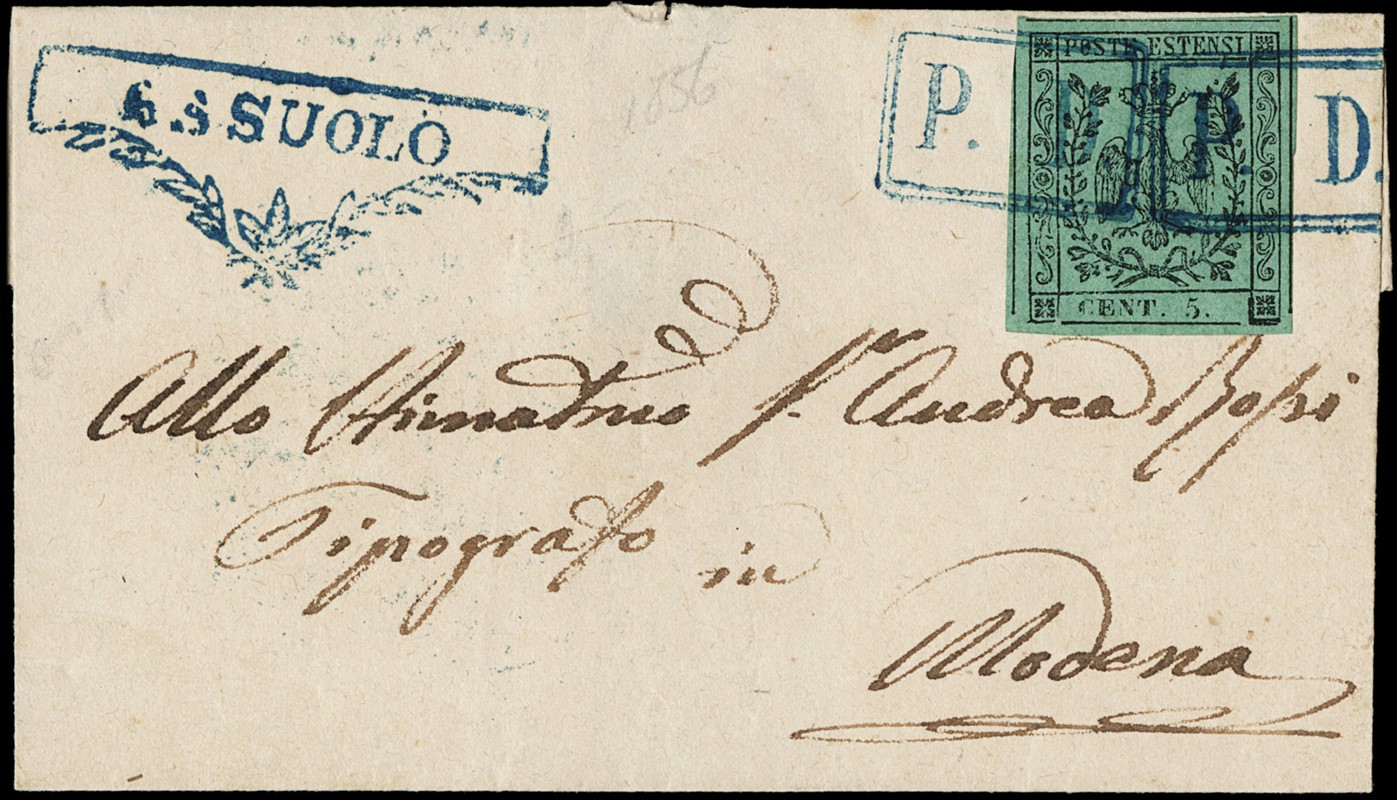 POSTE ESTENSI
P. D. P. D.
SSSUOLO
1856
CENT. 5.
Allo Stimatmo Sr Andrea Rossi
Tipografo
in
Modena